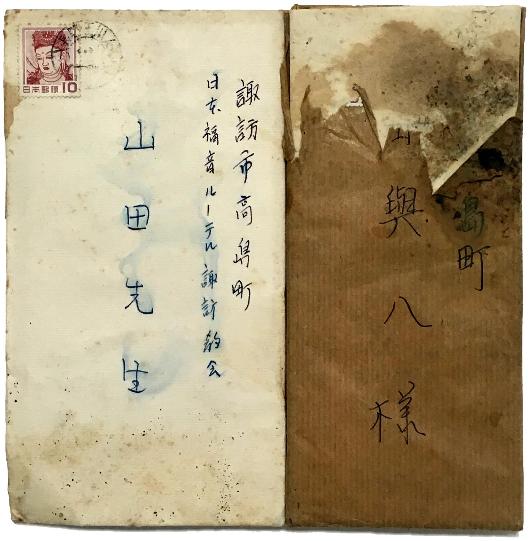 諏訪市高島町
日本福音ルーテル諏訪教会
山田先生
日本郵便 10
島町
與八様